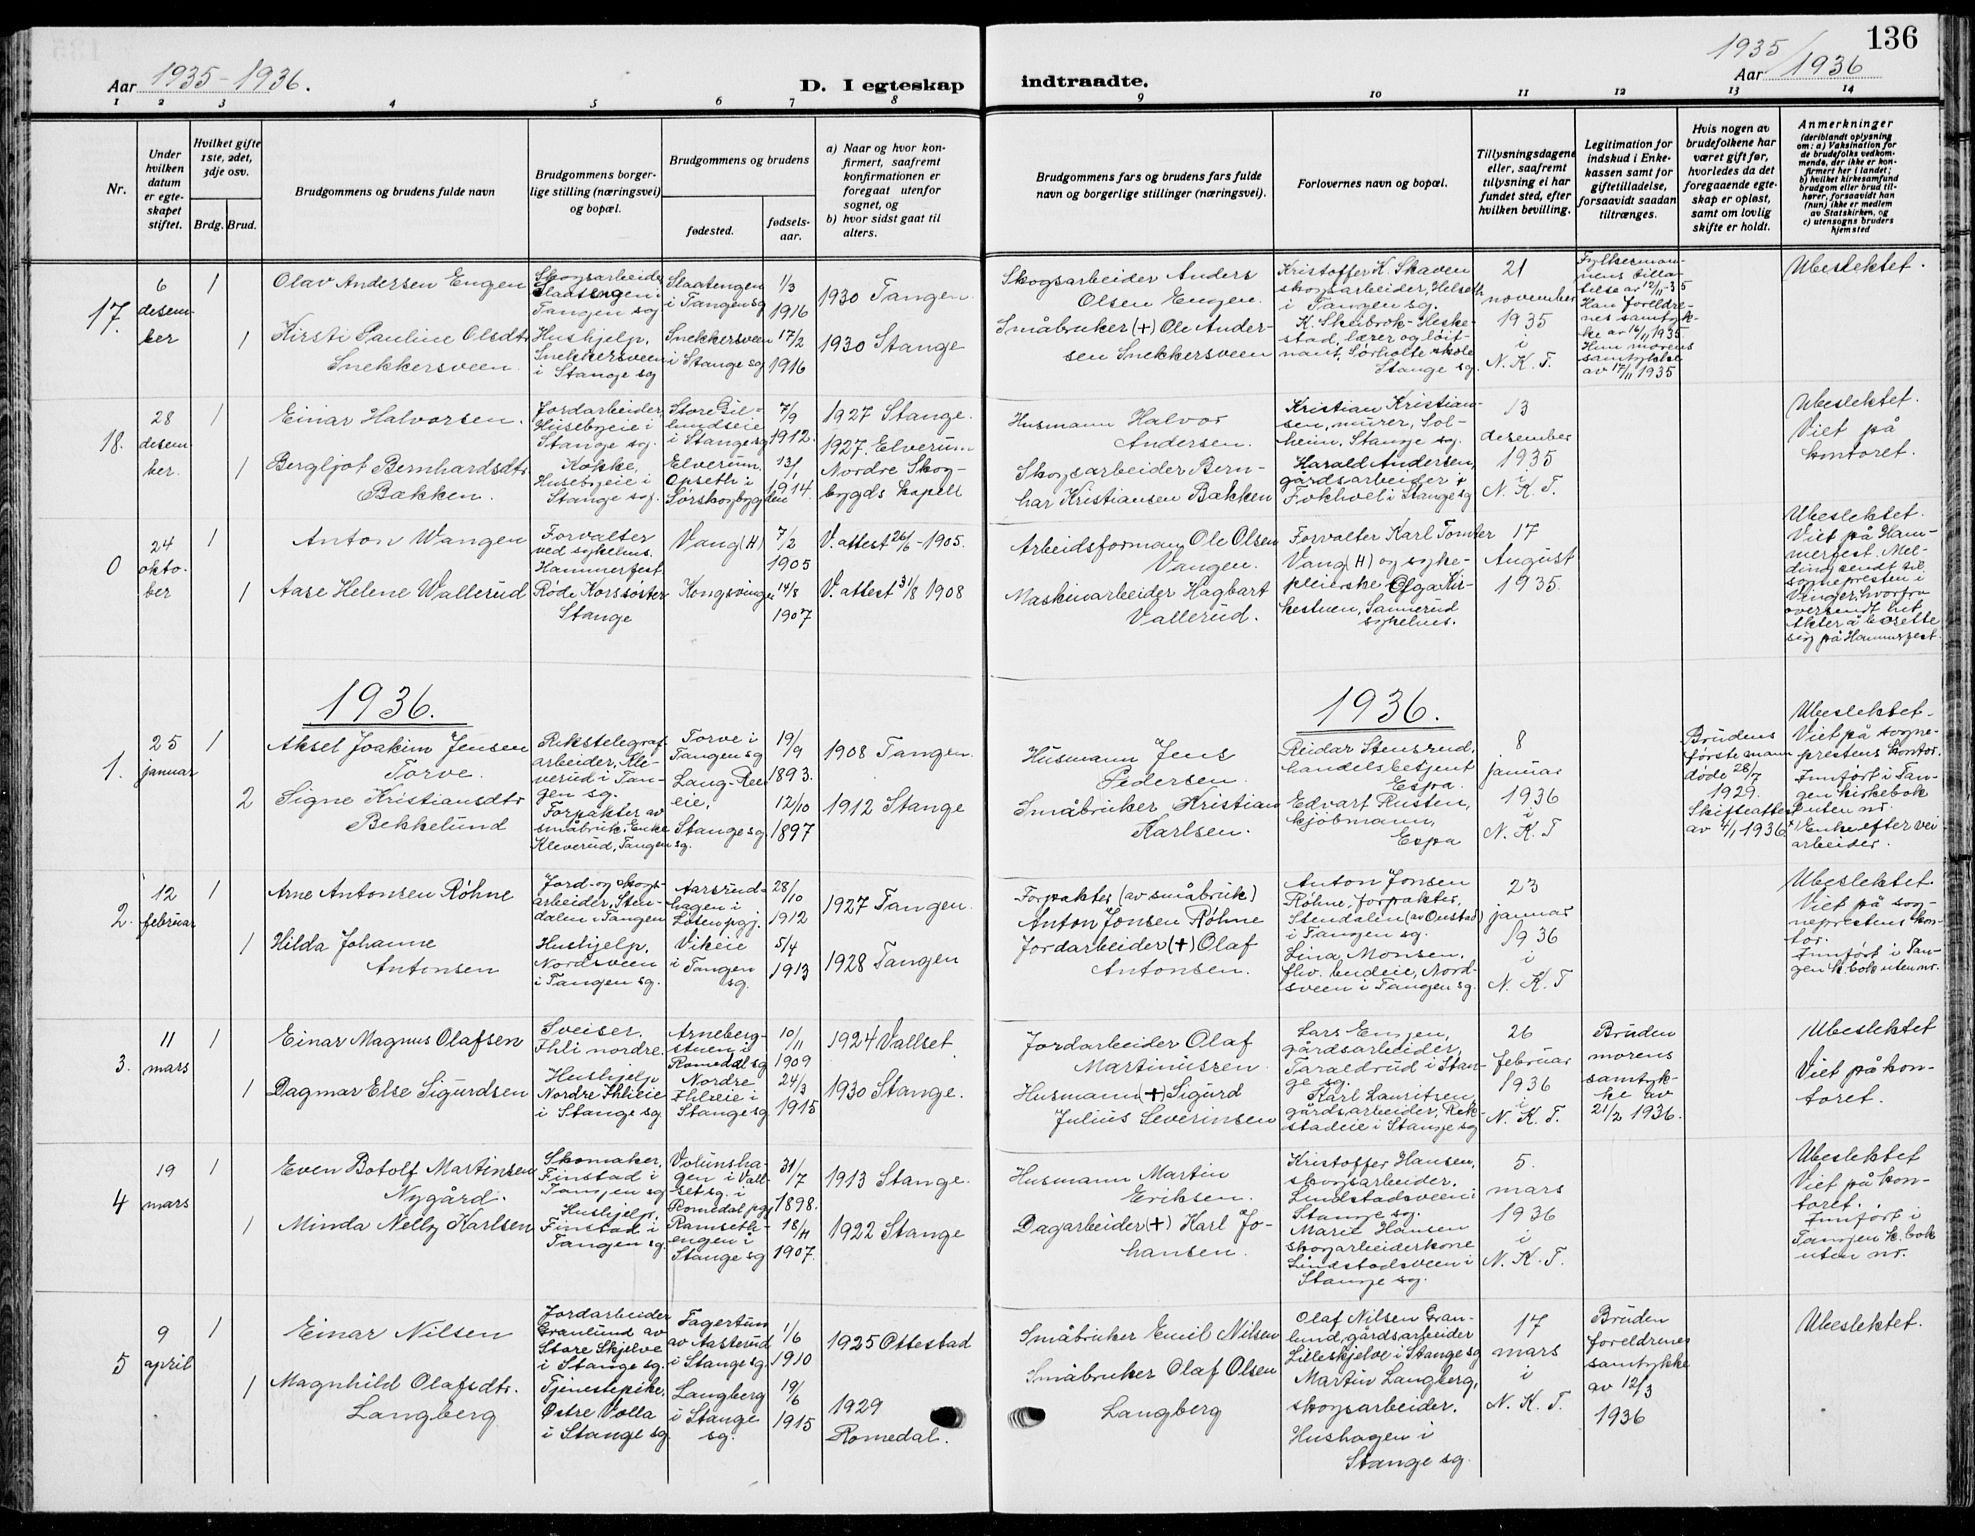 136
1935
Aar 1935-1936.
D. I egteskap
indtraadte.
Aar 1936
1 2 3 4 5 6 7 8 9 10 11 12 13 14
Nr.
Under hvilken datum er egteskapet stiftet.
Hvilket gifte 1ste, 2det, 3dje osv.
Brdg. Brud.
Brudgommens og brudens fulde navn
Brudgommens borgerlige stilling (næringsvei) og bopæl.
Brudgommens og brudens
fødested.
fødselsaar.
a) Naar og hvor konfirmert, saafremt konfirmationen er foregaat utenfor sognet, og
b) hvor sidst gaat til alters.
Brudgommens fars og brudens fars fulde navn og borgerlige stillinger (næringsvei).
Forlovernes navn og bopæl.
Tillysningsdagene eller, saafremt tillysning ei har fundet sted, efter hvilken bevilling.
Legitimation for indskud i Enkekassen samt for giftetilladelse, forsaavidt saadan tiltrænges.
Hvis nogen av brudefolkene har været gift før, hvorledes da det foregaaende egteskap er opløst, samt om lovlig skifte er holdt.
Anmerkninger
(deriblandt oplysning om: a) Vaksination for de brudefolks vedkommende, der ikke er konfirmert her i landet; b) hvilket kirkesamfund brudgom eller brud tilhører, forsaavidt han (hun) ikke er medlem av Statskirken, og c) utensogns bruders hjemsted
17. 6 desember 1
Olav Andersen Engen
Skogsarbeider Slaatengen i Tangen sg
Slaatengen i Tangen sg
1/3 1916
1930 Tangen.
Skogsarbeider Anders Olsen Engen.
Kristoffer K. Skaven skogsarbeider, Helseth i Tangen sg.
21 november 1935 i N. K. T.
Fylkesmannens tillatelse av 12/11-35
Han foreldrenes samtykke av 16/11 1935
Hun morens samtykke av 17/11 1935
Ubeslektet.
1 Kirsti Pauline Olsdtr Snekkersveen.
Hushjelp, Snekkersveen i Stange sg
Snekkersveen i Stange sg
17/2 1916
1930 Stange
Småbruker (+) Ole Andersen Snekkersveen
K. Skeibrok-Heskestad, lærer og løitnant, Sørholte skole Stange sg.
18. 28 desember. 1
Einar Halvorsen.
Jordarbeider, Husebyeie i Stange sg.
Store Gillundseie i Stange sg
7/9 1912.
1927 Stange.
Husmann Halvor Andersen.
Kristian Kristiansen, murer, Solheim, Stange sg.
13 desember 1935 i N. K. T.
Ubeslektet. Viet på kontoret.
1 Bergljot Bernhardsdtr Bakken.
Kokke, Husebyeie i Stange sg.
Elverum. Opseth i Sørskogbygden
13/1 1914.
1927. Elverum Nordre Skogbygds kapell
Skogsarbeider Bernhar Kristiansen Bakken
Harald Andersen, gårdsarbeider, Fokhol i Stange sg
0 24 oktober 1
Anton Wangen
Forvalter ved sykehus. Hammerfest
Vang (H)
7/2 1905
V. attest 26/6-1905.
Arbeidsformann Ole Olsen Vangen.
Forvalter Karl Tomter Vang (H) og sykepleierske Olga Kirkestuen, Sannerud sykehus.
17 August 1935.
Ubeslektet. Viet på Hammerfest. Melding sendt til sognepresten i Vinger, hvorfra oversendt hit Akter å bosette sig på Hammerfest.
1 Aase Helene Wallerud
Røde Korssøster Stange
Kongsvinger
14/8 1907
V. attest 31/8 1908
Maskinarbeider Hagbart Vallerud.
1936.
1936.
1. 25 januar 1
Aksel Joakim Jensen Torve.
Rikstelegrafarbeider, Kleverud i Tangen sg.
Torve i Tangen sg
19/9 1893.
1908 Tangen.
Husmann Jens Pedersen.
Reidar Stensrud, handelsbetjent Espa.
8 januar 1936 i N. K. T
Brudens første mann døde 28/7 1929. Skifteattest av 4/1 1936
Ubeslektet. Viet på sogneprestens kontor. Innført i Tangen kirkebok uten nr. Enke efter veiarbeider.
2 Signe Kristiansdtr Bekkelund
Forpakter av småbruk, Enke Kleverud, Tangen sg.
Lang-Reeeie, Stange sg
12/10 1897
1912 Stange
Småbruker Kristian Karlsen.
Edvart Rusten, kjøbmann, Espa
2. 12 februar 1
Arne Antonsen Røhne
Jord- og skogsarbeider, Stendalen i Tangen
Aarsrudhagen i Løten pgj.
28/10 1912
1927 Tangen.
Forpakter (av småbruk) Anton Jonsen Røhne
Anton Jonsen Røhne, forpakter, Stendalen (av Onstad) i Tangen sg.
23 januar 1936 i N. K. T
Ubeslektet. Viet på sogneprestens kontor. Innført i Tangen k. bok uten nr.
1 Hilda Johanne Antonsen
Hushjelp, Nordsveen i Tangen sg.
Vikeie i Tangen sg.
5/4 1913
1928 Tangen
Jordarbeider (+) Olaf Antonsen.
Lina Monsen, fhv. budeie, Nordsveen i Tangen sg.
3. 11 mars 1
Einar Magnus Olafsen
Sveiser, Ihli nordre.
Arnebergstuen i Romedal sg
10/11 1909
1924 Vallset.
Jordarbeider Olaf Martinussen.
Lars Engen, gårdsarbeider, Taraldrud i Stange sg.
26 februar 1936 i N. K. T.
Bruden morens samtykke av 21/2 1936.
Ubeslektet Viet på kontoret.
1 Dagmar Else Sigurdsen
Hushjelp Nordre Ihlieie i Stange sg
Nordre Ihlieie i Stange sg
24/3 1915
1930 Stange.
Husmann (+) Sigurd Julius Severinsen
Karl Lauritsen, gårdsarbeider, Rekstadeie i Stange sg
4 19 mars 1
Even Botolf Martinsen Nygård.
Skomaker, Finstad i Tangen sg
Volunshagen i Vallset sg. i Romedal pgj
31/7 1898.
1913 Stange.
Husmann Martin Eriksen.
Kristoffer Hansen, skogsarbeider, Lindstadsveen i Stange sg.
5. mars 1936 i N. K. T.
Ubeslektet Viet på kontoret. Innført i Tangen k. bok uten nr.
1 Minda Nelly Karlsen
Hushjelp, Finstad i Tangen sg.
Ramsethengen i Stange sg
18/11 1907.
1922 Stange
Dagarbeider (+) Karl Johansen.
Marie Hansen skogarbeiderkone Lindstadsveen i Stange sg.
5 9 april 1
Einar Nilsen
Jordarbeider Granlund av Store Skjelve i Stange sg.
Fagertun av Aasterud i Stange sg.
1/6 1910
1925 Ottestad
Småbruker Emil Nilsen
Olaf Nilsen Granlund, gårdsarbeider Lilleskjelve i Stange sg
17 mars i N. K. T.
Bruden foreldrenes samtykke av 12/3 1936
Ubeslektet.
1 Magnhild Olafsdtr. Langberg
Tjenestepike, Østre Volla i Stange sg.
Langberg i Stange sg.
19/6 1915
1929 Romedal.
Småbruker Olaf Olsen Langberg
Martin Langberg, skogsarbeider, Hushagen i Stange sg.